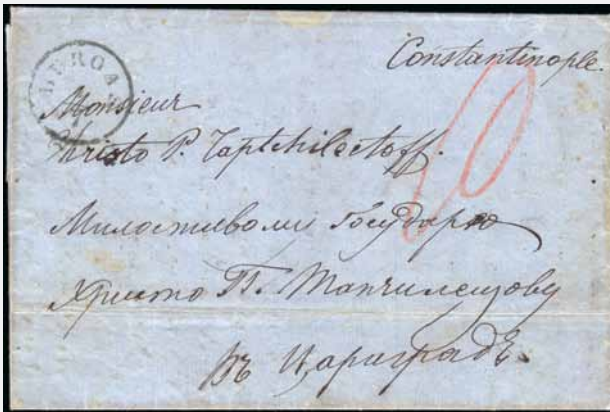 Constantinople.
Monsieur
Christo P. Taptchilectoff.
40
Милостивому Государю
Христо П. Тапчилещову
въ Цариградъ.